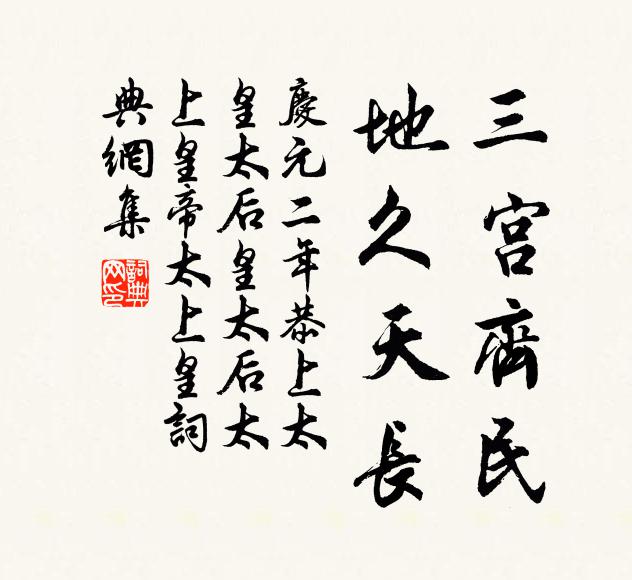 三宫齊民
地久天長
慶元二年恭上太
皇太后皇太后太
上皇帝太上皇詞
典網集
詞典
网印